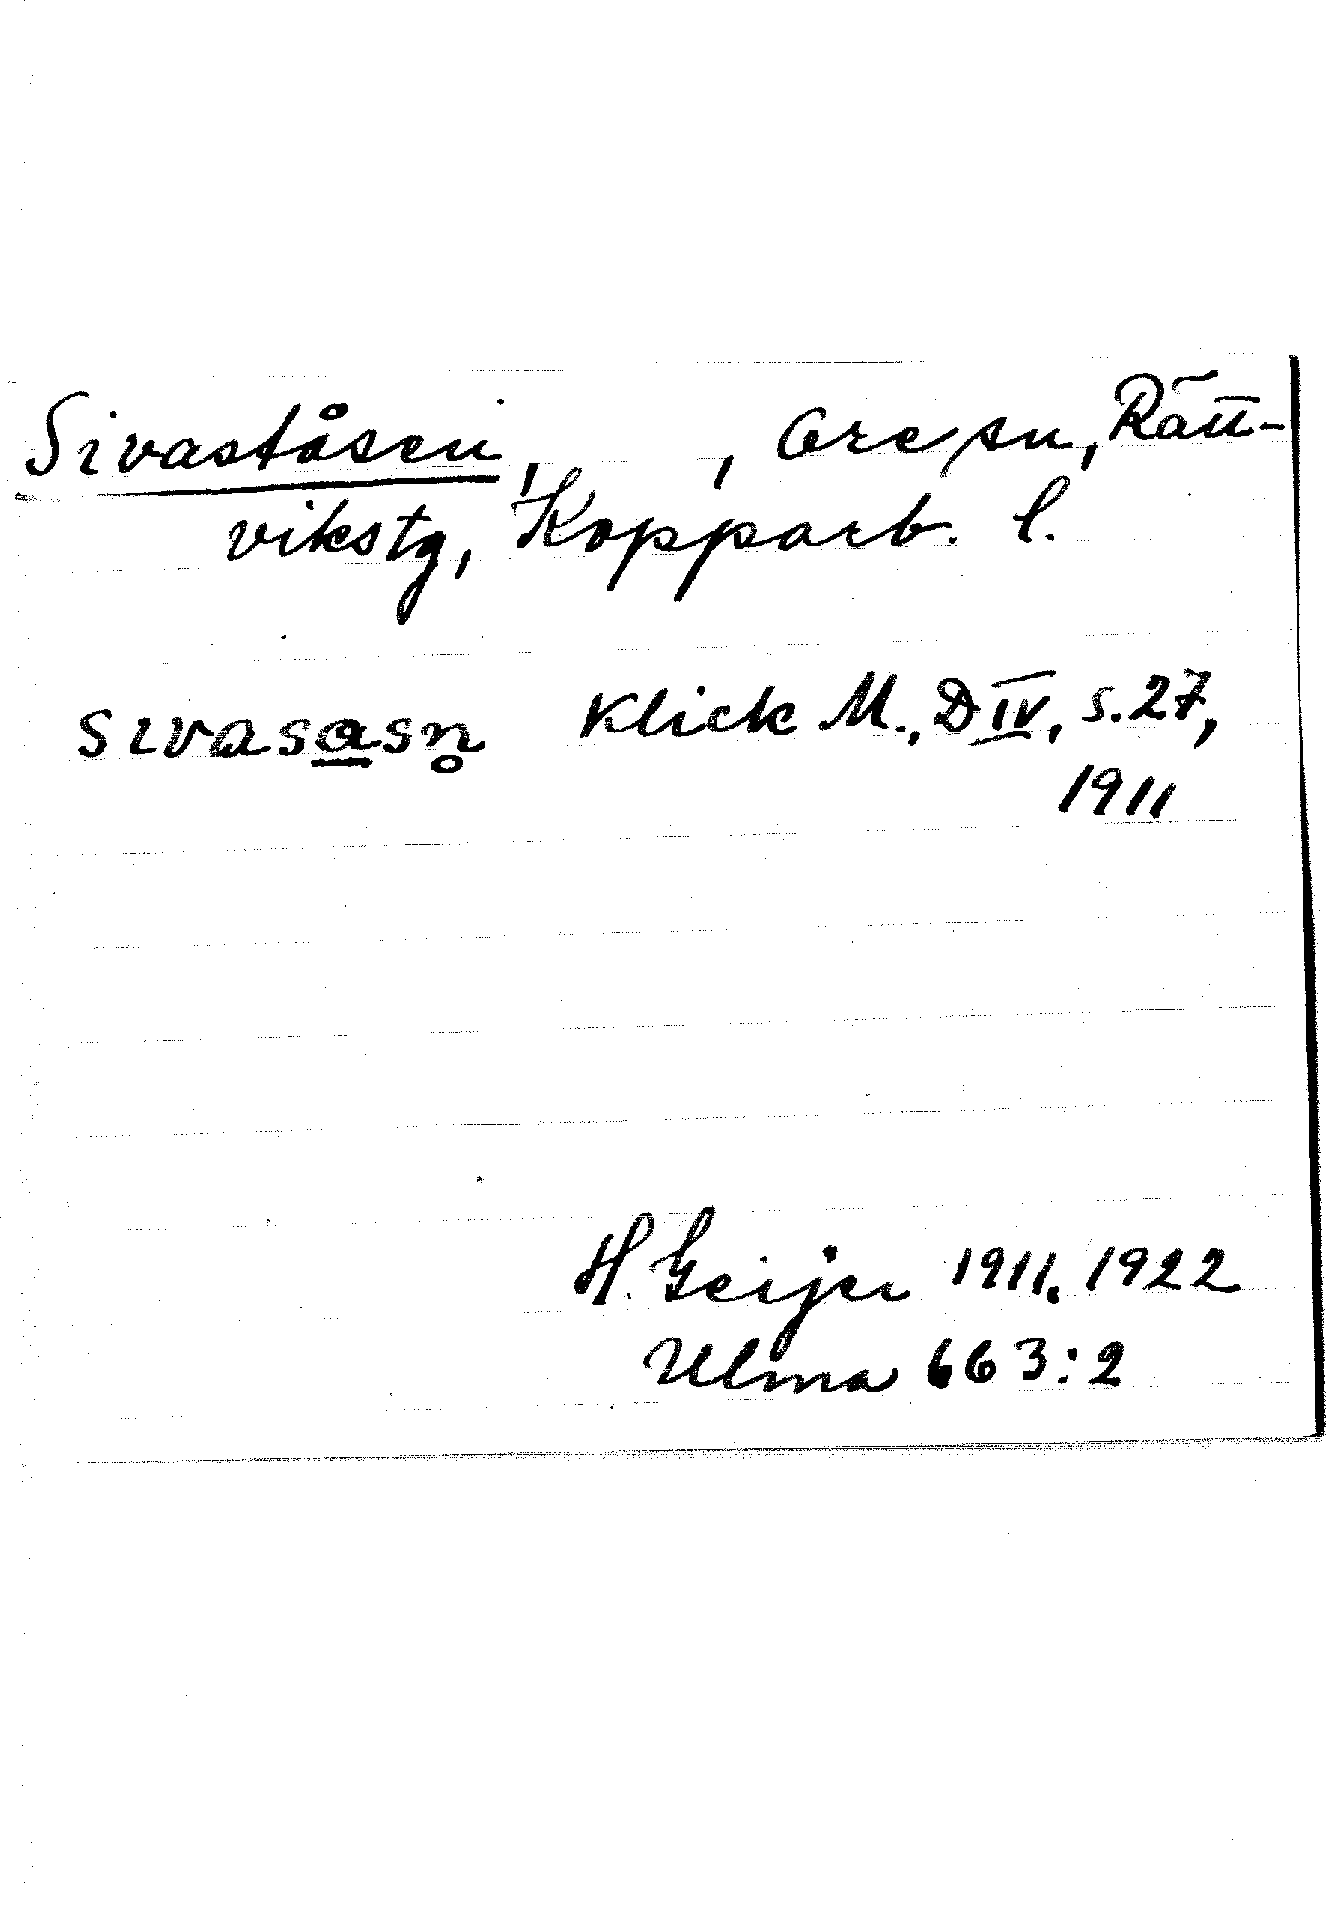 Sivaståsen, , Ore sn, Rätt-
vikstg, Kopparb. l.
sivasa̲sn̥ Klick M., D IV, s. 27,
1911
H. Geijer 1911. 1922
Ulma 663:2